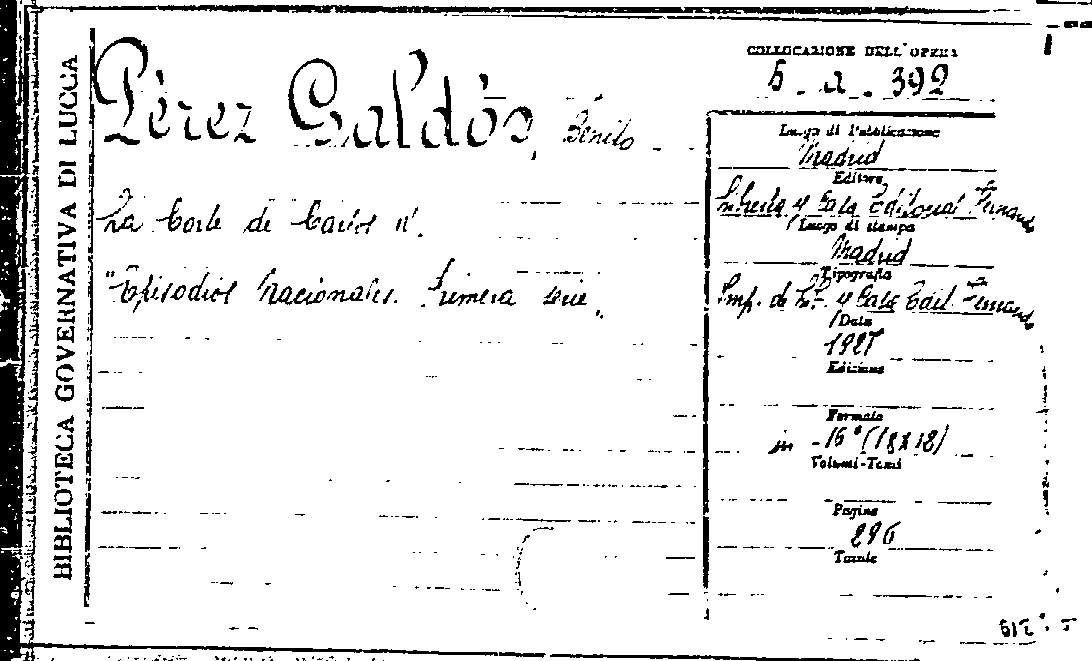 BIBLIOTECA GOVERNATIVA DI LUCCA
Pérez Galdós, Benito
La Corte de Carlos IV.
"Episodios Nacionales. Primera serie.
COLLOCAZIONE DELL'OPERA
5 - a. 392
Luogo di Pubblicazione
Madrid
Editore
y Casa Editorial Fernando
Luogo di stampa
Madrid
Tipografia
Imp. de y Casa Edit. Fernando
Data
Edizione
Formato
in -16° (18x12)
Volumi-Tomi
Pagine
296
Tavole